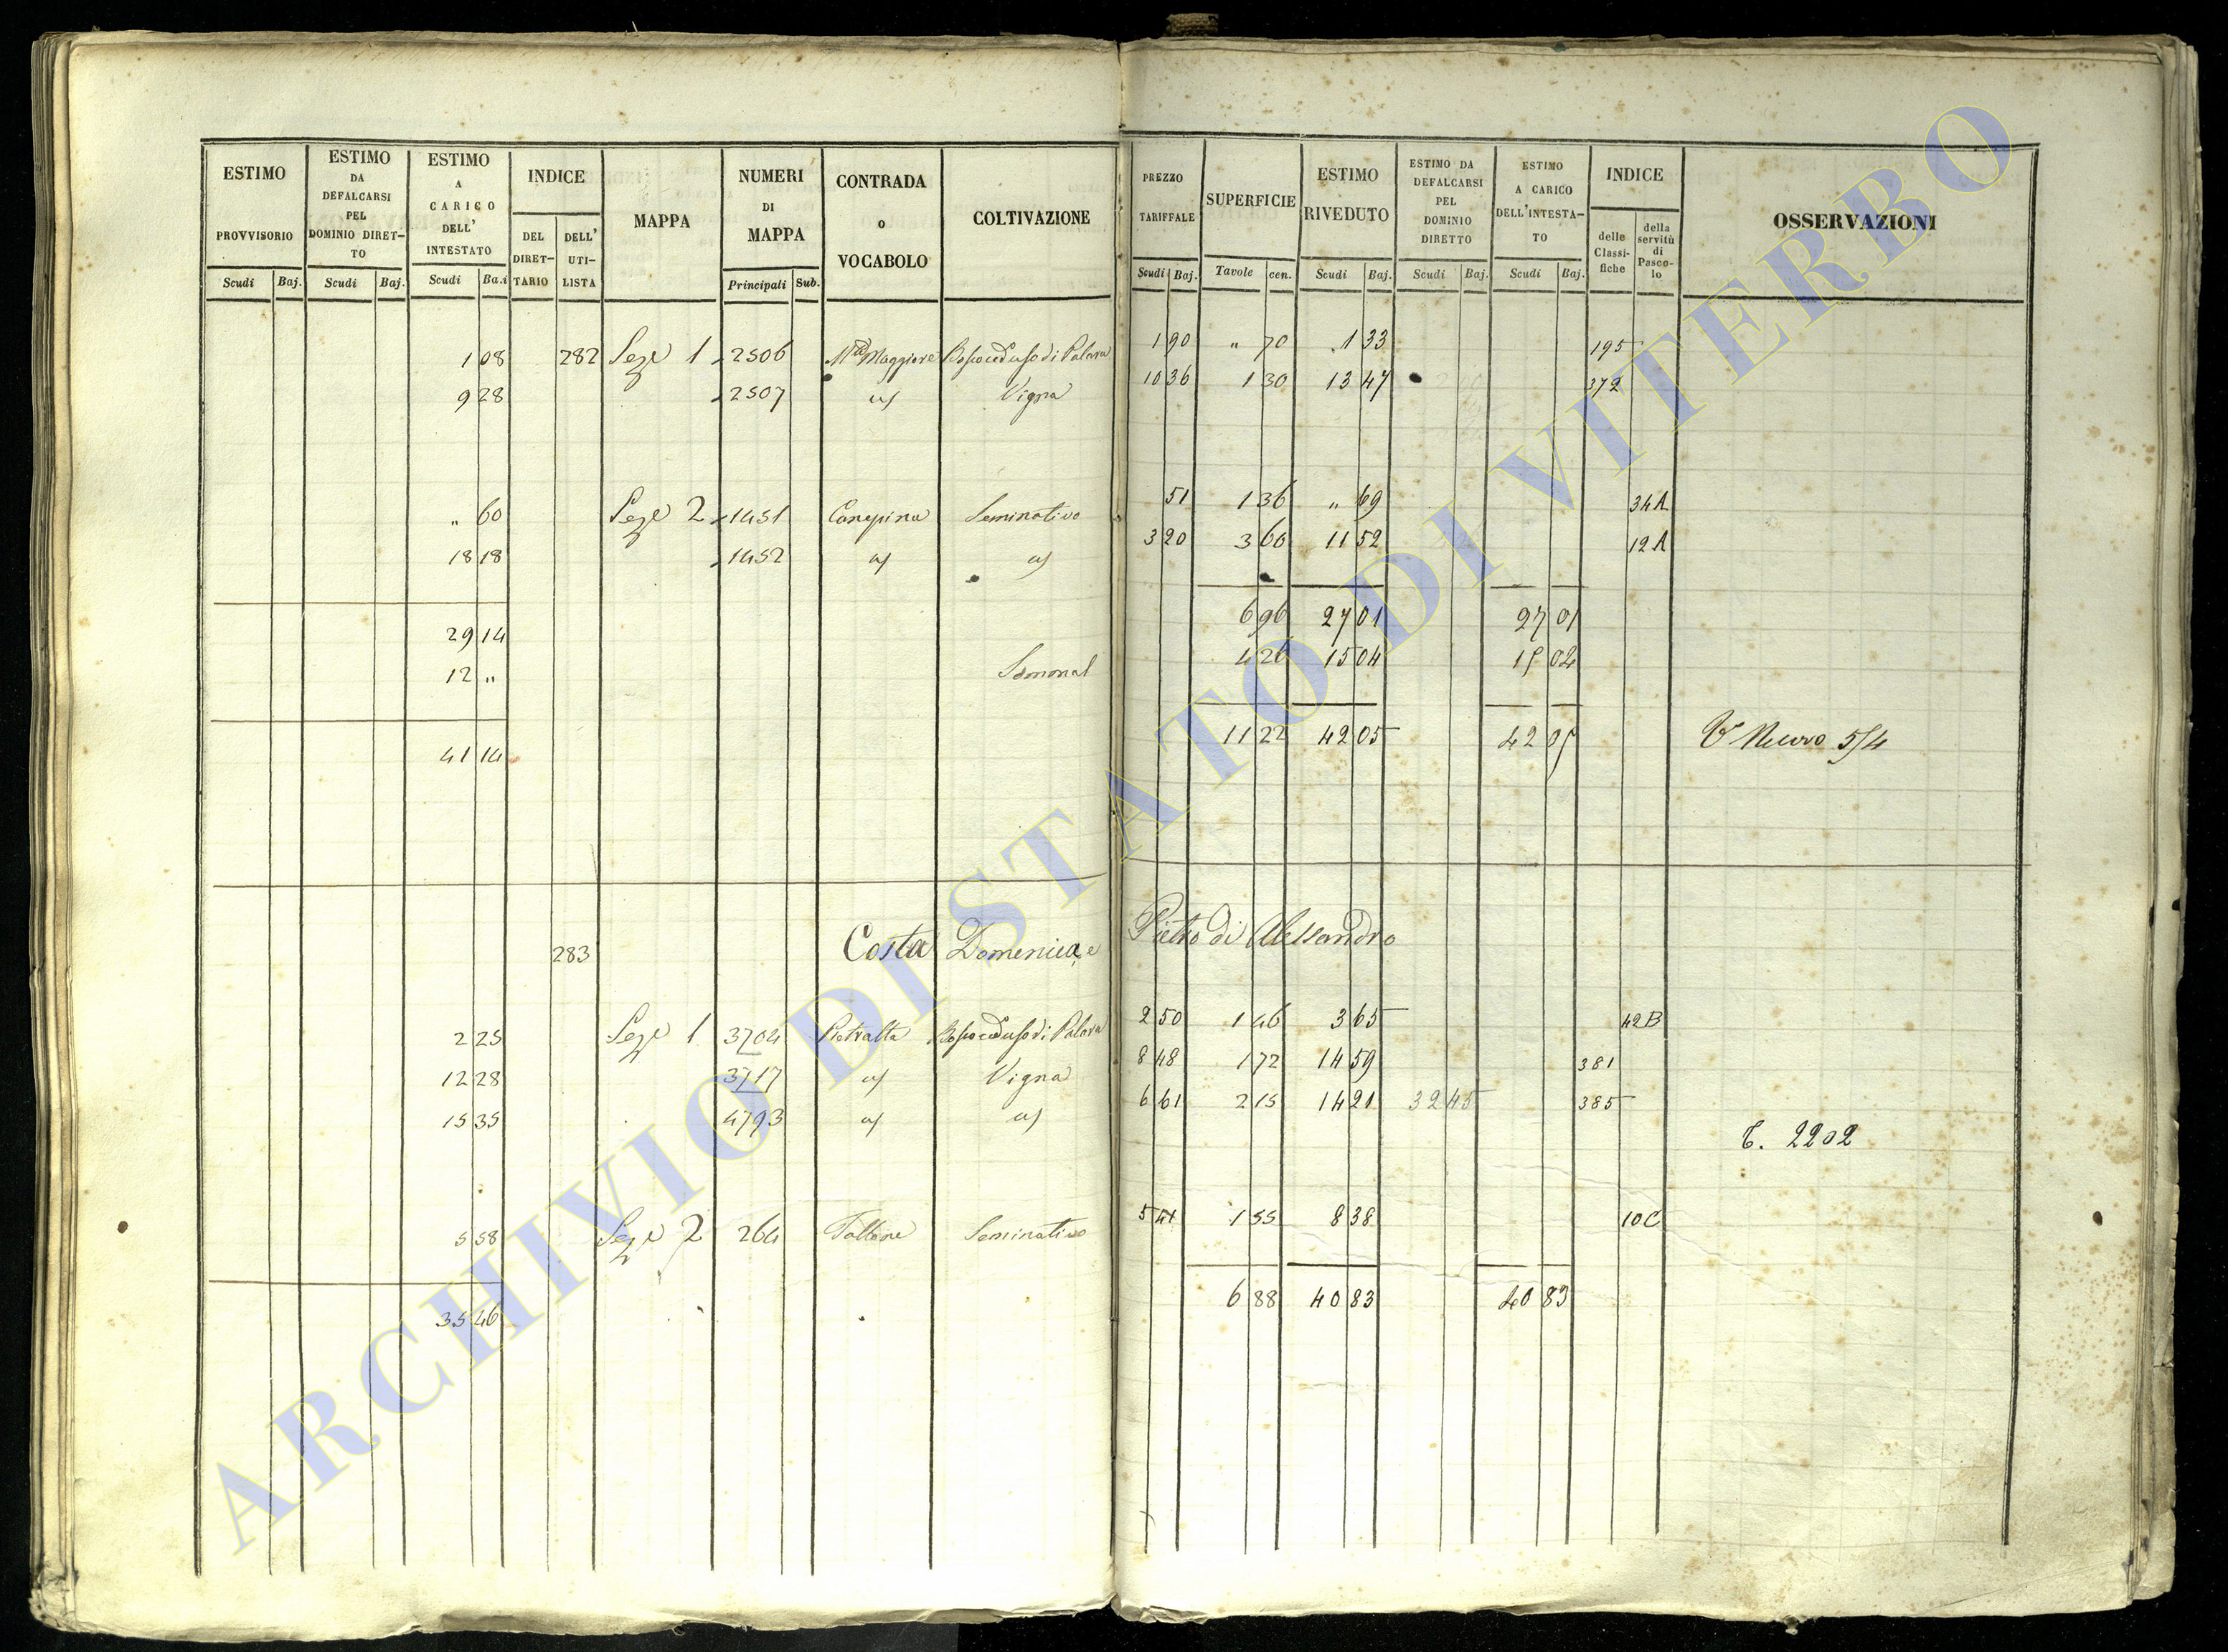 ESTIMO PROVVISORIO Scudi Baj.
ESTIMO DA DEFALCARSI PEL DOMINIO DIRET-TO Scudi Baj.
ESTIMO A CARICO DELL' INTESTATO Scudi Ba.i
INDICE DEL DIRET-TARIO DELL' UTI-LISTA
MAPPA
NUMERI DI MAPPA Principali Sub.
CONTRADA o VOCABOLO
COLTIVAZIONE
PREZZO TARIFFALE Scudi Baj.
SUPERFICIE Tavole cen.
ESTIMO RIVEDUTO Scudi Baj.
ESTIMO DA DEFALCARSI PEL DOMINIO DIRETTO Scudi Baj.
ESTIMO A CARICO DELL'INTESTA-TO Scudi Baj.
INDICE delle Classi-fiche della servitù di Pasco-lo
OSSERVAZIONI
1 08 282 Seze 1 2506 Maggiore Boscoceduo di Palara 1 90 " 70 1 33 195
9 28 2507 Vigna 10 36 1 30 13 47 372
" 60 Seze 2 1451 Canepina Seminativo 51 1 36 " 69 34A
18 18 1452 3 20 3 60 11 52 12A
29 14 6 96 27 01 27 01
12 " 4 26 15 04 15 04
41 14 11 22 42 05 42 05 Nuovo 5/4
283 Costa Domenica, e Pietro di Alessandro
2 25 Seze 1 3704 Pietralta Boscoceduo di Palara 2 50 1 46 3 65 42B
12 28 3717 Vigna 8 48 1 72 14 59 381
15 35 4793 6 61 2 15 14 21 32 45 385
T. 2202
5 58 Seze 2 264 Fattone Seminativo 5 41 1 55 8 38 10C
35 46 6 88 40 83 40 83
ARCHIVIO DI STATO DI VITERBO